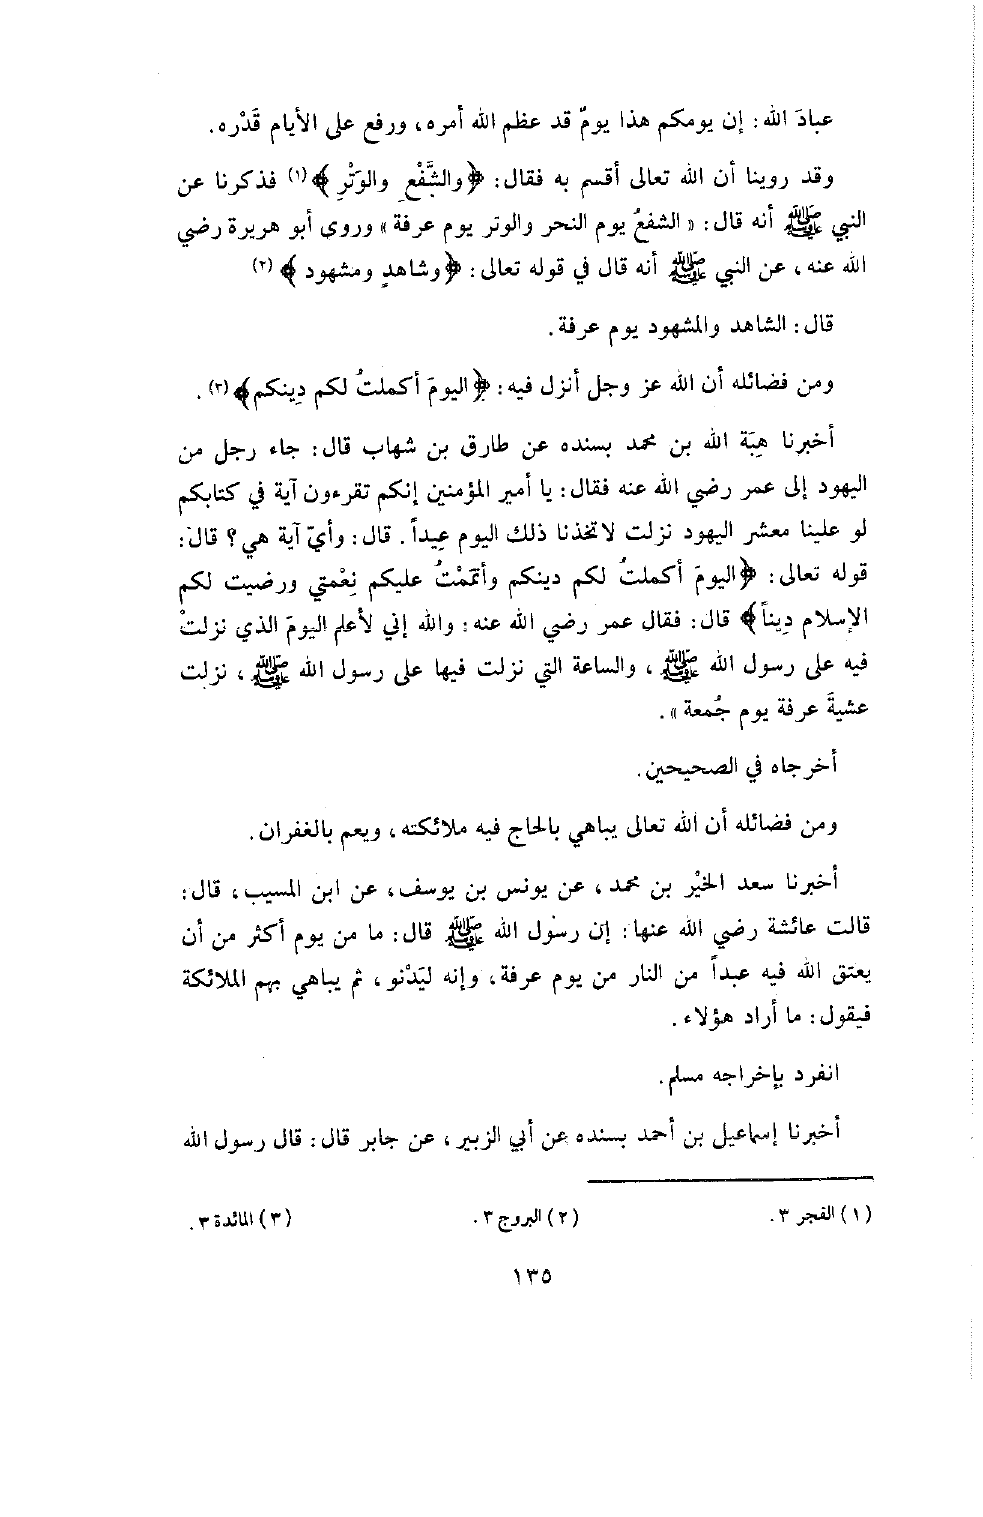 عبادَ الله: إن يومكم هذا يومٌ قد عظم الله أمره، ورفع على الأيام قَدْره.
وقد روينا أن الله تعالى أقسم به فقال: ﴿والشَّفْعِ والوَتْرِ﴾(١) فذكرنا عن
النبي ﷺ أنه قال: «الشفعُ يوم النحر والوتر يوم عرفة» وروى أبو هريرة رضي
الله عنه، عن النبي ﷺ أنه قال في قوله تعالى: ﴿وشاهدٍ ومشهود﴾(٢)
قال: الشاهد والمشهود يوم عرفة.
ومن فضائله أن الله عز وجل أنزل فيه: ﴿اليومَ أكملتُ لكم دِينكم﴾(٣).
أخبرنا هِبَة الله بن محمد بسنده عن طارق بن شهاب قال: جاء رجل من
اليهود إلى عمر رضي الله عنه فقال: يا أمير المؤمنين إنكم تقرءون آية في كتابكم
لو علينا معشر اليهود نزلت لاتخذنا ذلك اليوم عِيداً. قال: وأيّ آية هي؟ قال:
قوله تعالى: ﴿اليومَ أكملتُ لكم دينكم وأتمَمْتُ عليكم نِعْمتي ورضيت لكم
الإسلام دِيناً﴾ قال: فقال عمر رضي الله عنه: والله إني لأعلم اليومَ الذي نزلتْ
فيه على رسول الله ﷺ، والساعة التي نزلت فيها على رسول الله ﷺ، نزلت
عشيةَ عرفة يوم جُمعة».
أخرجاه في الصحيحين.
ومن فضائله أن الله تعالى يباهي بالحاج فيه ملائكته، ويعم بالغفران.
أخبرنا سعد الخيْر بن محمد، عن يونس بن يوسف، عن ابن المسيب، قال:
قالت عائشة رضي الله عنها: إن رسول الله ﷺ قال: ما من يوم أكثر من أن
يعتق الله فيه عبداً من النار من يوم عرفة، وإنه ليَدْنو، ثم يباهي بهم الملائكة
فيقول: ما أراد هؤلاء.
انفرد بإخراجه مسلم.
أخبرنا إسماعيل بن أحمد بسنده عن أبي الزبير، عن جابر قال: قال رسول الله
(١) الفجر ٣. (٢) البروج ٣. (٣) المائدة ٣.
١٣٥